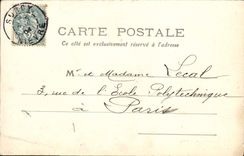 CARTE POSTALE
Ce côté est exclusivement réservé à l'adresse
Mr et Madame Lecal
3, rue de l'Ecole Polytechnique
à Paris